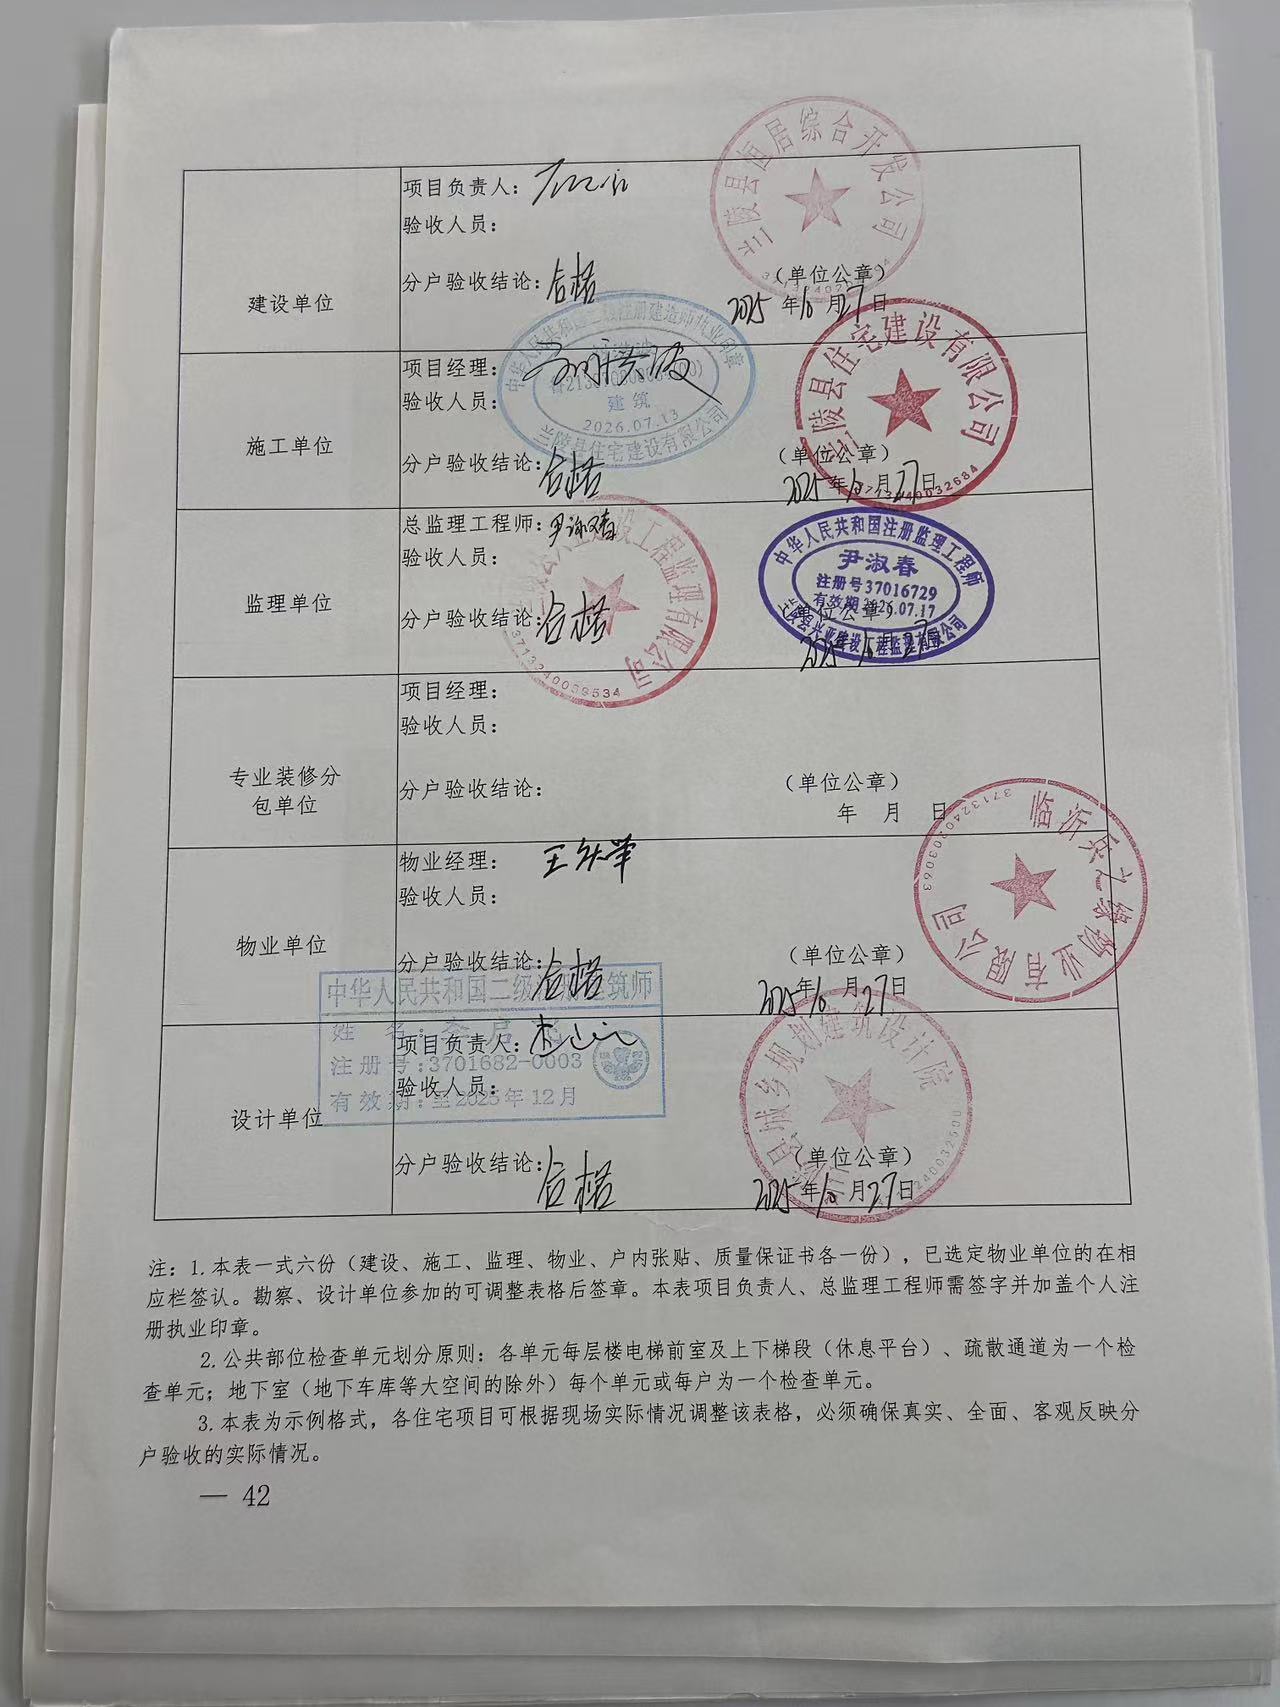 兰陵县恒居综合开发公司
建设单位
项目负责人：
验收人员：
分户验收结论：合格
（单位公章）
2025年10月27日
中华人民共和国二级注册建造师执业印章
建筑
2026.07.13
兰陵县住宅建设有限公司
兰陵县住宅建设有限公司
3713240032684
施工单位
项目经理：
验收人员：
分户验收结论：合格
（单位公章）
2025年10月27日
监理单位
总监理工程师：尹淑春
验收人员：
分户验收结论：合格
（单位公章）
2025年10月27日
建设工程监理有限公司
3713240039534
中华人民共和国注册监理工程师
尹淑春
注册号37016729
有效期2026.07.17
兴业建设工程监理有限公司
专业装修分
包单位
项目经理：
验收人员：
分户验收结论：
（单位公章）
年 月 日
临沂兵之缘物业有限公司
3713240203063
物业单位
物业经理：
验收人员：
分户验收结论：合格
（单位公章）
2025年10月27日
中华人民共和国二级注册建筑师
姓 名：
注册号：3701682-0003
有效期：至2025年12月
设计单位
项目负责人：
验收人员：
分户验收结论：合格
（单位公章）
2025年10月27日
县城乡规划建筑设计院
注：1.本表一式六份（建设、施工、监理、物业、户内张贴、质量保证书各一份），已选定物业单位的在相
应栏签认。勘察、设计单位参加的可调整表格后签章。本表项目负责人、总监理工程师需签字并加盖个人注
册执业印章。
2.公共部位检查单元划分原则：各单元每层楼电梯前室及上下梯段（休息平台）、疏散通道为一个检
查单元；地下室（地下车库等大空间的除外）每个单元或每户为一个检查单元。
3.本表为示例格式，各住宅项目可根据现场实际情况调整该表格，必须确保真实、全面、客观反映分
户验收的实际情况。
— 42